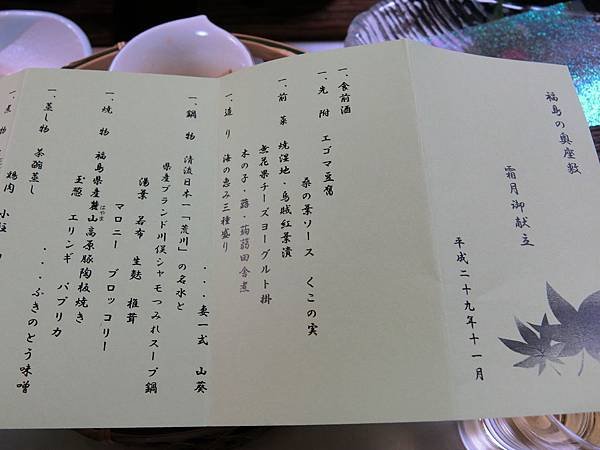 福島の奥座敷
霜月御献立
平成二十九年十一月
一、食前酒
一、先附 エゴマ豆腐
桑の葉ソース くこの実
一、前菜 焼湿地・烏賊紅葉漬
無花果チーズヨーグルト掛
木の子・蕗・蒟蒻田舎煮
一、造り 海の恵み三種盛り
・・・妻一式 山葵
一、鍋物 清流日本一「荒川」の名水と
県産ブランド川俣シャモつみれスープ鍋
湯葉 若布 生麩 椎茸
マロニー ブロッコリー
一、焼物 福島県産麓山高原豚陶板焼き
はやま
玉葱 エリンギ パプリカ
・・・ふきのとう味噌
一、蒸し物 茶碗蒸し
一、煮物
鶏肉 小